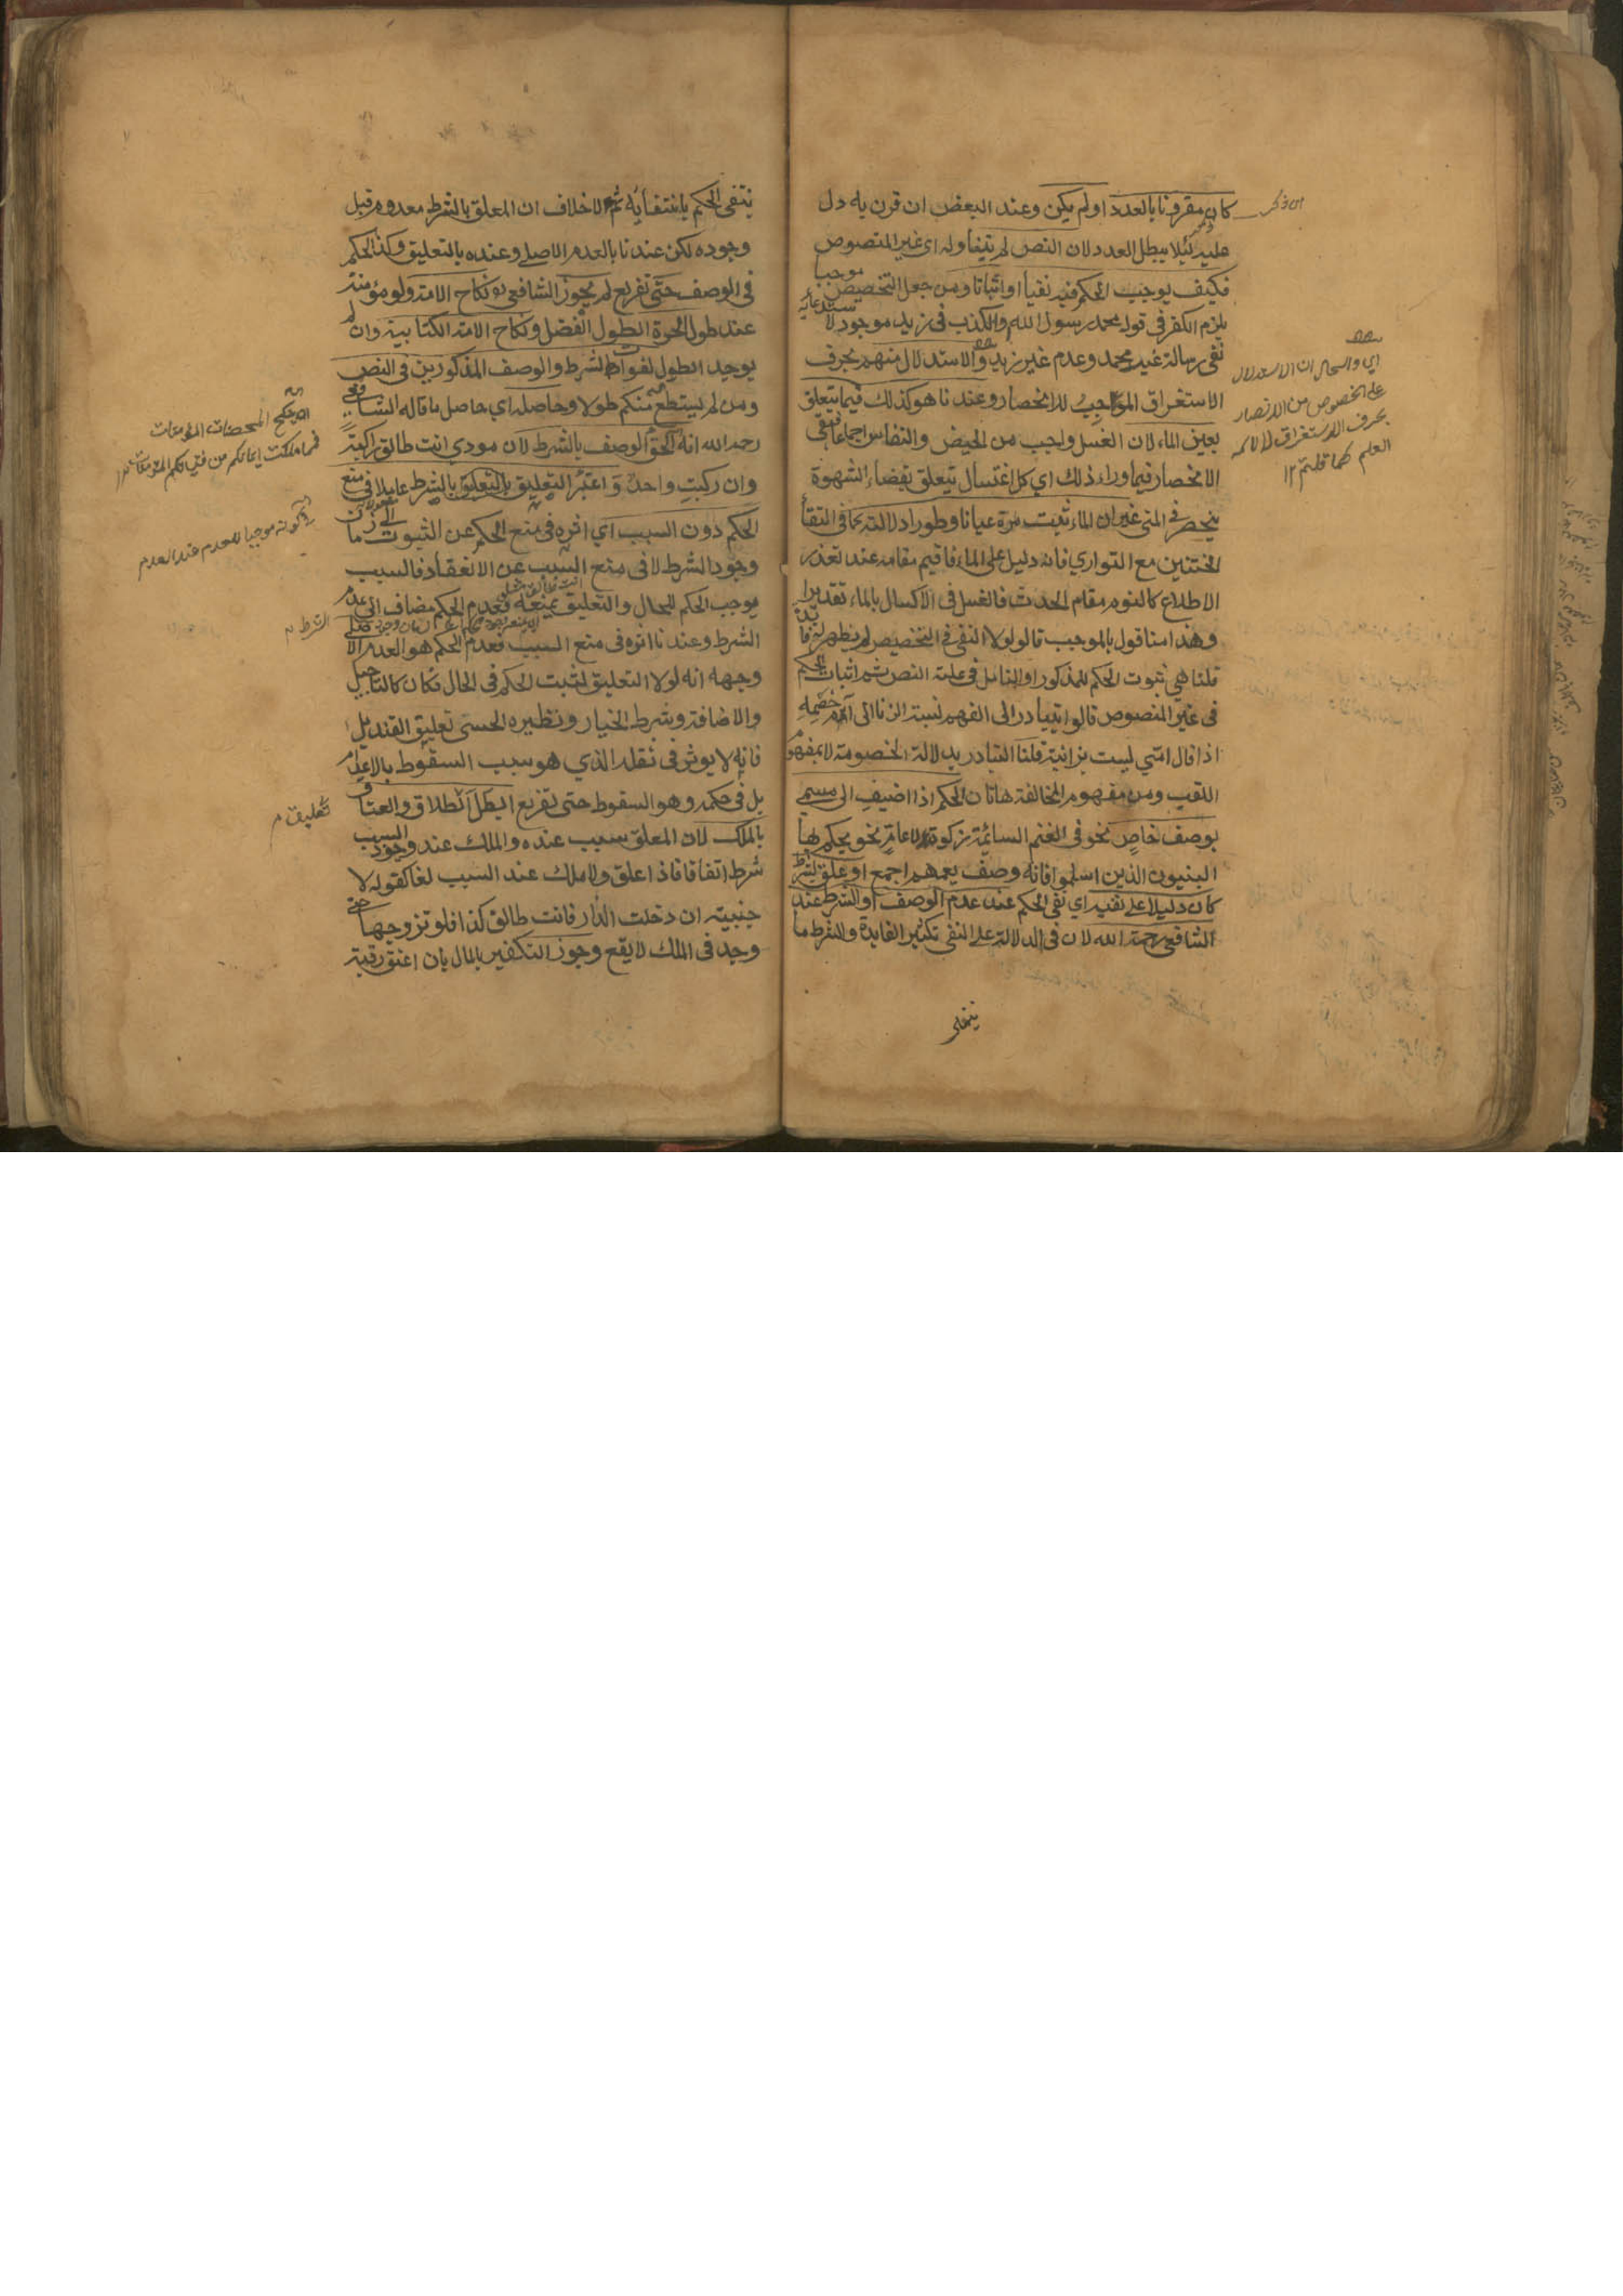 كان مقرونا بالعدد او لم يكن وعند البعض ان قرن به دل
عليه لئلا يبطل العدد لان النص لم يتناوله اى غير المنصوص
فكيف يوجب الحكم فيه نفيا او اثباتا ومن جعل التخصيص موجبا
يلزم الكفر فى قوله محمد رسول الله والكذب فى زيد موجود لا
نفى رسالة غير محمد وعدم غير زيد والاستدلال منهم بحرف
الاستغراق الموجب للانحصار وعندنا هو كذلك فيما يتعلق
بعين الماء لان الغسل واجب من الحيض والنفاس اجماعا فبقى
الانحصار فيما وراء ذلك اي كل اغتسال يتعلق بقضاء الشهوة
ينحصر فى المنى غير ان الماء يثبت مرة عيانا وطورا دلالة كما فى التقا
الختنين مع التواري فانه دليل على الماء فاقيم مقامه عند تعذر
الاطلاع كالنوم مقام الحدث فالغسل فى الاكسال بالماء تقديرا
وهذا منا قول بالموجب قالوا لولا النفى فى التخصيص لم يظهر له فا ئدة
قلنا هي ثبوت الحكم للمذكور او التامل فى علة النص ثم اثبات الحكم
فى غير المنصوص قالوا يتبادر الى الفهم نسبة الزنا الى ام خصمه
اذا قال امي ليست بزانية قلنا التبادر بدلالة الخصومة لا بمفهوم
اللقب ومن مفهوم المخالفة هاتان الحكم اذا اضيف الى مسمي
بوصف خاص نحو فى الغنم السائمة زكوة لا عام نحو يحكم بها
النبيون الذين اسلموا فانه وصف يعمهم اجمع او علق بشرط
كان دليلا على نفيه اي نفى الحكم عند عدم الوصف او الشرط عند
الشافعى رحمة الله لان فى الدلالة على النفى تكثير الفايدة والشرط ما
ينتفى
اى والحال ان الاستدلال
على الخصوص من الانصار
بحرف الاستغراق لا لاسم
العلم كما قلتم ١٢
ينتفى الحكم بانتفائه ثم لا خلاف ان المعلق بالشرط معدوم قبل
وجوده لكن عندنا بالعدم الاصلى وعنده بالتعليق وكذا الحكم
فى الوصف حتى تفريع لم يجوز الشافعى نكاح الامة ولو مؤمنة
عند طول الحرة الطول الفضل ونكاح الامة الكتابية وان لم
يوجد الطول لفوات الشرط والوصف المذكورين فى النص
ومن لم يستطع منكم طولا وحاصله اي حاصل ما قاله الشافعى
رحمه الله انه الحق الوصف بالشرط لان مودي انت طالق راكبة
وان ركبت واحد واعتبر التعليق بالشرط عاملا فى منع
الحكم دون السبب اي اثره فى منع الحكم عن الثبوت الى زمان
وجود الشرط لا فى منع السبب عن الانعقاد فالسبب
موجب الحكم للحال والتعليق يمنعه فعدم الحكم مضاف الى عدم
الشرط وعندنا اثره فى منع السبب فعدم الحكم هو العدم الاصلى
وجهه انه لولا التعليق لثبت الحكم فى الحال فكان كالتاجيل
والاضافة وشرط الخيار ونظيره الحسى تعليق القنديل
فانه لا يوثر فى ثقله الذي هو سبب السقوط بالاعدام
بل فى حكمه وهو السقوط حتى تفريع ابطل الطلاق والعتاق
بالملك لان المعلق سبب عنده والملك عند وجود السبب
شرط اتفاقا فاذا علق ولا ملك عند السبب لغا كقوله لا
جنبية ان دخلت الدار فانت طالق كذا فلو تزوجها حتى
وجد فى الملك لا يقع وجوز التكفير بالمال بان اعتق رقبة
ان ينكح المحصنات المؤمنات
فمما ملكت ايمانكم من فتياتكم المؤمنات
كونه موجبا للعدم عند العدم
الشرط م
تعليق م